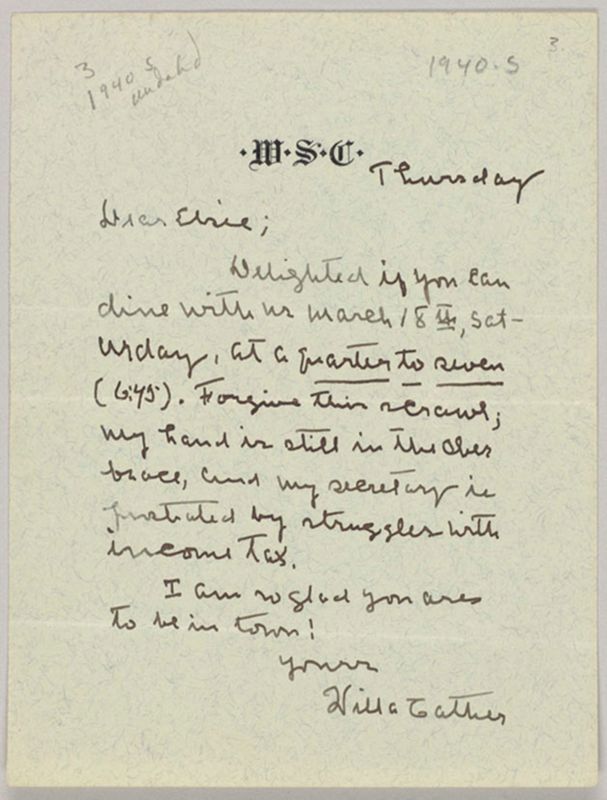 3
1940 S
undated
1940-S
3.
·W·S·C·
Thursday
Dear Elsie;
Delighted if you can
dine with us March 18th, Sat-
urday, at a quarter to seven
(6:45). Forgive this scrawl;
my hand is still in the Ober
brace, and my secretary is
prostrated by struggles with
income tax.
I am so glad you are
to be in town!
Yours
Willa Cather